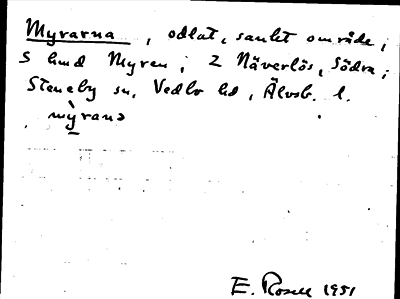 Myrarna, odlat, sankt område,
S hmd Myren; 2 Näverlös, Södra;
Steneby sn, Vedbo hd, Älvsb. l.
myrana
E. Rosell 1951